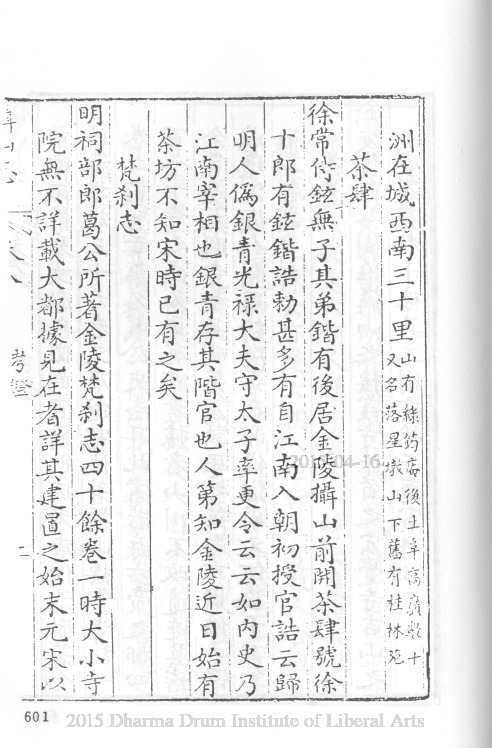 洲在城西南三十里山有綠筠菴後土阜高廣數十
又名落星墩山下舊有桂林苑
茶肆
徐常侍鉉無子其弟鍇有後居金陵攝山前開茶肆號徐
十郎有鉉鍇誥勅甚多有自江南入朝初授官誥云歸
明人偽銀青光祿大夫守太子率更令云云如內史乃
江南宰相也銀青存其階官也人第知金陵近日始有
茶坊不知宋時已有之矣
梵刹志
明祠部郎葛公所著金陵梵刹志四十餘卷一時大小寺
院無不詳載大都據見在者詳其建置之始末元宋以
考證
二
601
2015 Dharma Drum Institute of Liberal Arts